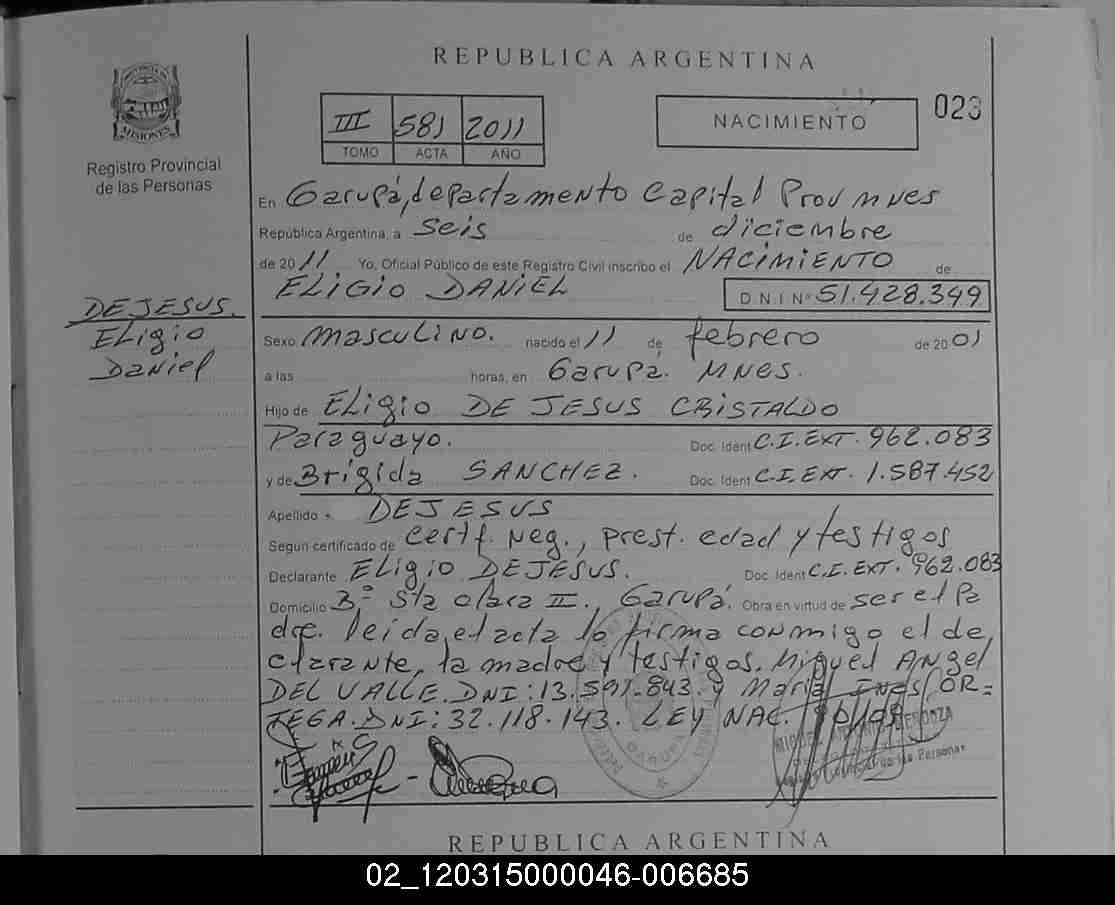 REPUBLICA ARGENTINA
MISIONES
Registro Provincial
de las Personas
III 581 2011
TOMO ACTA AÑO
NACIMIENTO
023
En Garupá, departamento Capital Prov Mnes
República Argentina, a seis de diciembre
de 2011 Yo, Oficial Público de este Registro Civil inscribo el NACIMIENTO de
ELIGIO DANIEL D.N.I Nº 51.428.349
DEJESUS.
Eligio
Daniel
Sexo masculino. nacido el 11 de febrero de 2001
a las horas, en Garupá. MNES.
Hijo de ELigio DE JESUS CRISTALDO
Paraguayo. Doc. Ident C.I.EXT. 962.083
y de Brígida SANCHEZ. Doc. Ident C.I.EXT. 1.587.452
Apellido DEJESUS
Segun certificado de certf. Neg., prest. edad y testigos
Declarante ELigio DEJESUS. Doc. Ident C.I. EXT. 962.083
Domicilio Bº Sta clara II., Garupá. Obra en virtud de ser el Pa
dre. leida el acta lo firma conmigo el de
clarante, la madre y testigos. Miguel Angel
DEL VALLE. DNI: 13.591.843. y Maria Ines OR=
TEGA. DNI: 32.118.143. LEY NAC.
REPUBLICA ARGENTINA
02_120315000046-006685